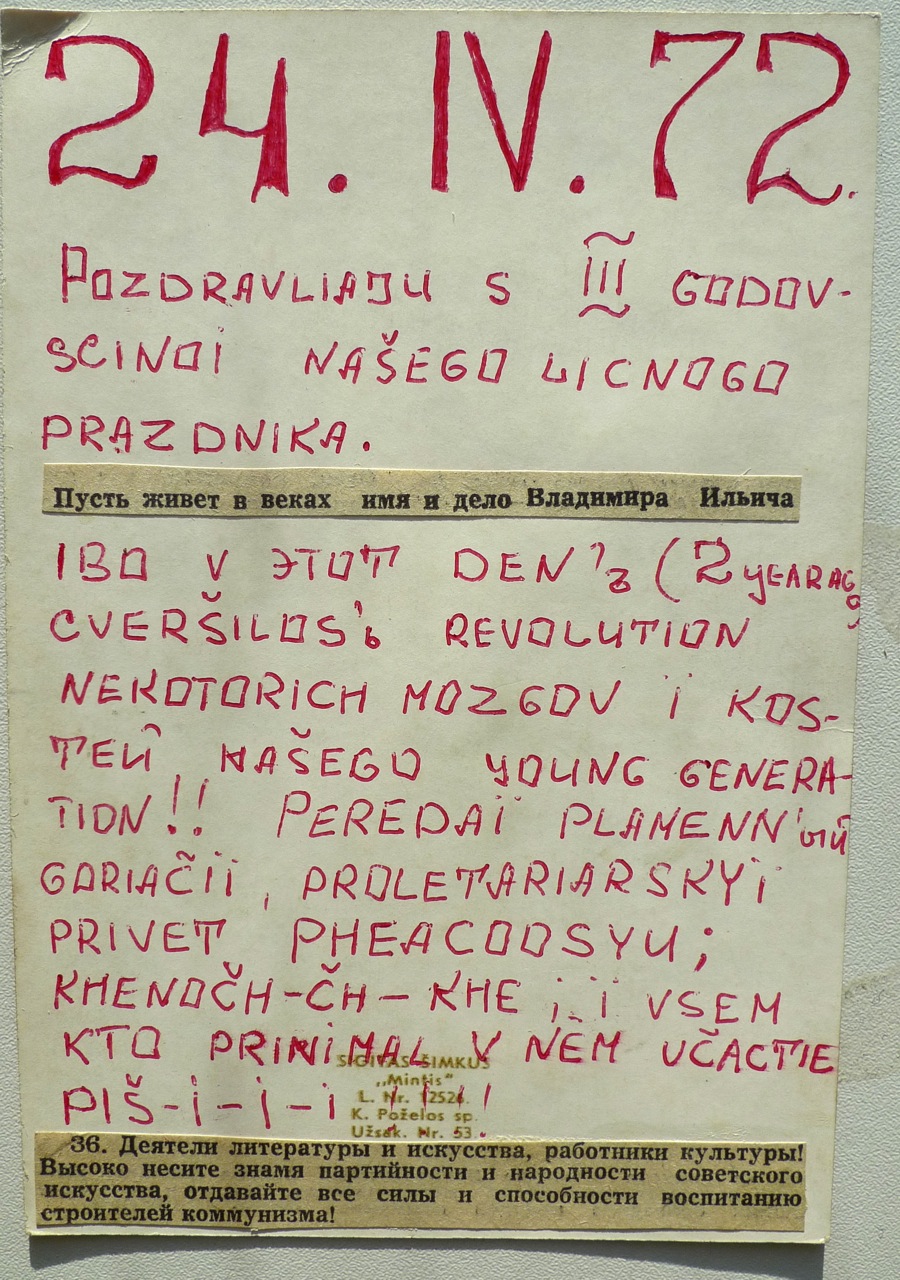 24. IV. 72.
POZDRAVLIAJU S III GODOV-
SCINOI NAŠEGO LICNOGO
PRAZDNIKA.
Пусть живет в веках имя и дело Владимира Ильича
IBO V ЭTOT DEN'ь (2 YEAR AGO
CVERŠILOS'ь REVOLUTION
NEKOTORICH MOZGOV I KOS-
TEЙ NAŠEGO YOUNG GENERA-
TION!! PEREDAÏ PLAMENN'ЫЙ
GORIAČII, PROLETARIARSKYI
PRIVET PHEACODSYU;
KHENOČH-ČH-KHE ; I VSEM
KTO PRINIMAL V NĖM UČACTIE
PIŠ-I-I-I !!!!
SIGITAS ŠIMKUS
„Mintis"
L. Nr. 12526.
K. Poželos sp.
Užsak. Nr. 53.
36. Деятели литературы и искусства, работники культуры!
Высоко несите знамя партийности и народности советского
искусства, отдавайте все силы и способности воспитанию
строителей коммунизма!